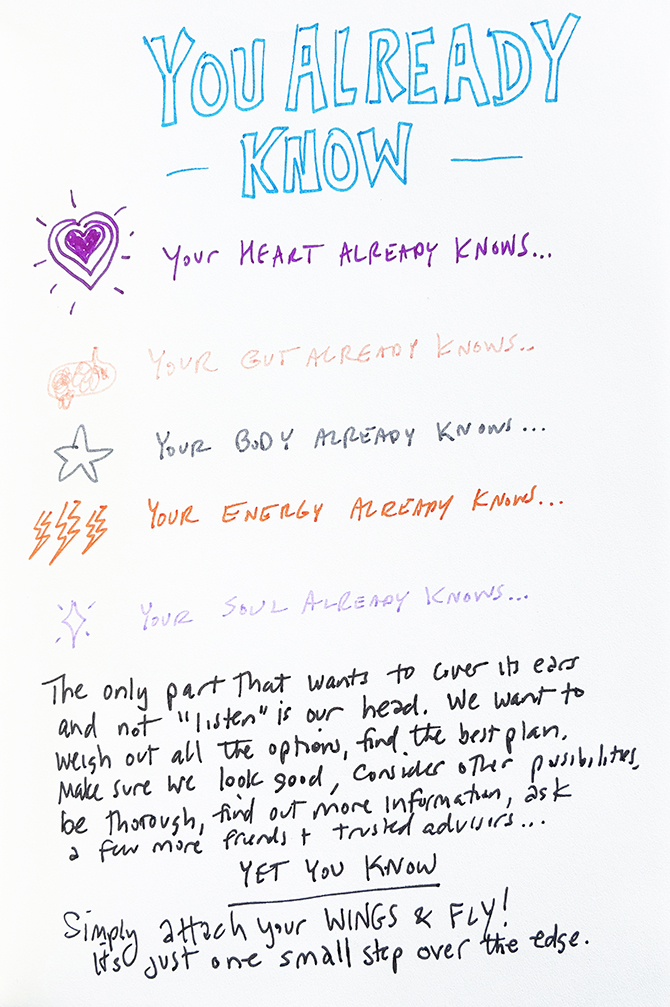 YOU ALREADY
- KNOW -
YOUR HEART ALREADY KNOWS...
YOUR GUT ALREADY KNOWS...
YOUR BODY ALREADY KNOWS...
YOUR ENERGY ALREADY KNOWS...
YOUR SOUL ALREADY KNOWS...
The only part that wants to cover its ears
and not "listen" is our head. We want to
weigh out all the options, find the best plan.
Make sure we look good, consider other possibilities,
be thorough, find out more information, ask
a few more friends + trusted advisors...
YET YOU KNOW
Simply attach your WINGS & FLY!
It's just one small step over the edge.